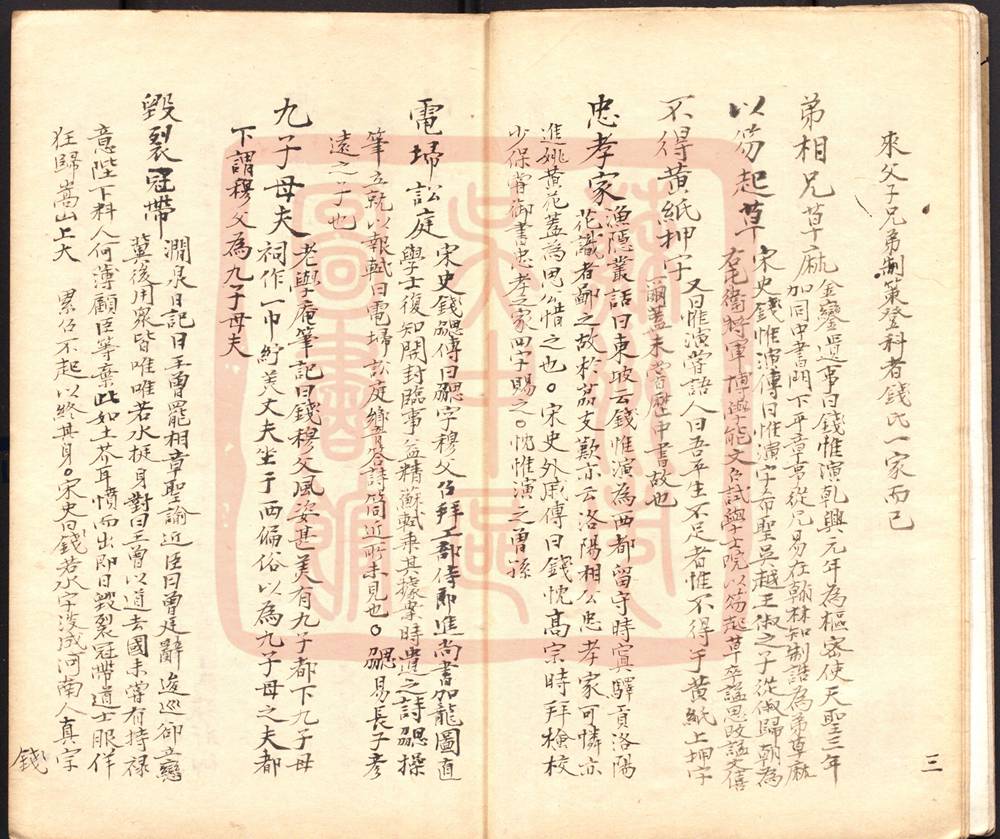 來父子兄弟制策登科者錢氏一家而已
弟相兄草麻 金鑾遺事曰錢惟演乳興元年為樞密使天聖三年
加同中書門下平章事從兄易在翰林知制誥為弟草麻
以笏起草 宋史錢惟演傳曰惟演字希聖吳越王俶之子從俶歸朝為
右屯衛將軍博學能文召試學士院以笏起草卒謚思改謚文僖
不得黃紙押字 又曰惟演嘗語人曰吾平生不足者惟不得于黃紙上押字
爾蓋未嘗歷中書故也
忠孝家 漁隱叢話曰東坡云錢惟演為西都留守時寘驛貢洛陽
花識者鄙之故於荔支歎亦云洛陽相公忠孝家可憐亦
進姚黃花蓋為思公惜之也○宋史外戚傳曰錢忱高宗時拜檢校
少保嘗御書忠孝之家四字賜之○忱惟演之曾孫
電埽訟庭 宋史錢勰傳曰勰字穆父召拜工部侍郎進尚書加龍圖直
學士復知開封臨事益精蘇軾乘其據案時遺之詩勰操
筆立就以報軾曰電埽訟庭響答詩筒近所未見也○勰易長子彥
遠之子也
九子母夫 老學庵筆記曰錢穆父風姿甚美有九子都下九子母
祠作一巾紵美丈夫坐于西偏俗以為九子母之夫都
下謂穆父為九子母夫
毀裂冠帶 澗泉日記曰王曾罷相章聖諭近臣曰曾廷辭逡巡卻立戀
冀後用衆皆唯唯若水挺身對曰王曾以道去國未嘗有持祿
意陛下料人何薄顧臣等棄此如土芥耳憤而出即日毀裂冠帶道士服佯
狂歸嵩山上大 累召不起以終其身○宋史曰錢若水字淡成河南人真宗
錢
三